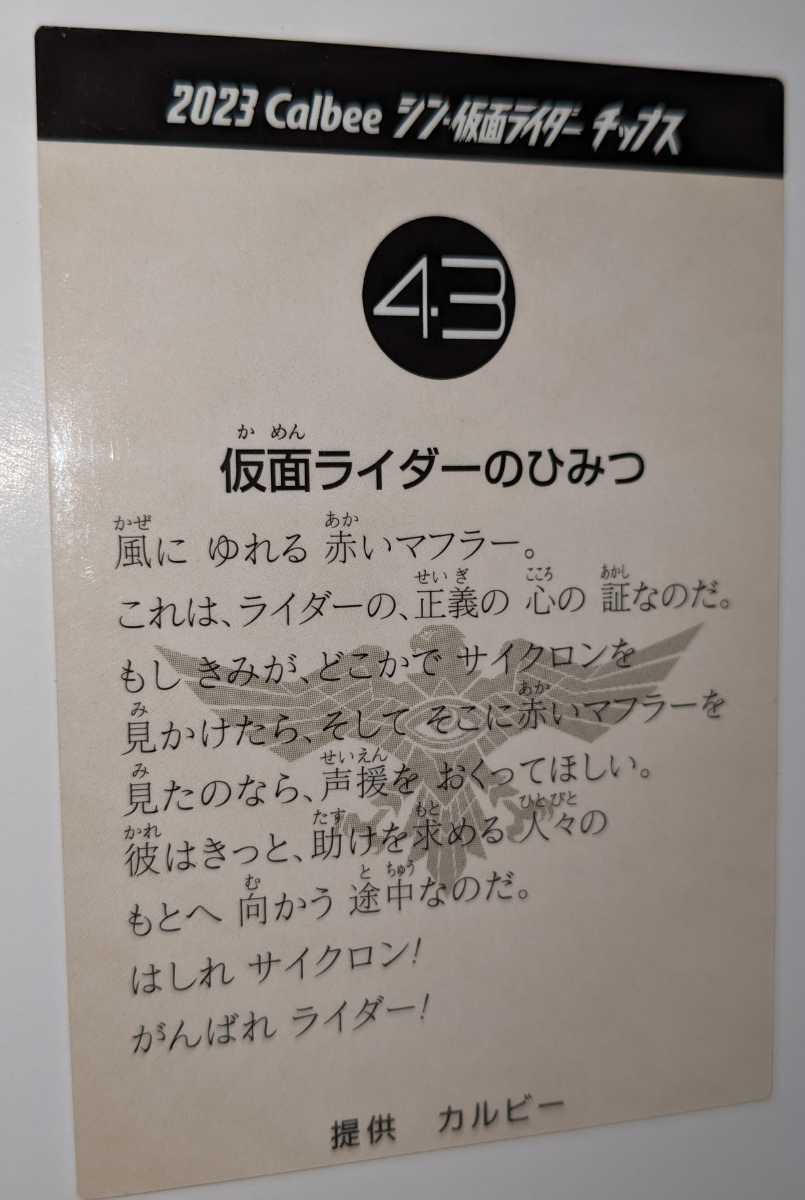 2023 Calbee シン・仮面ライダー チップス
43
か めん
仮面ライダーのひみつ
かぜ あか
風に ゆれる 赤いマフラー。
せい ぎ こころ あかし
これは、ライダーの、正義の 心の 証なのだ。
もし きみが、どこかで サイクロンを
み あか
見かけたら、そして そこに赤いマフラーを
み せいえん
見たのなら、声援を おくってほしい。
かれ たす もと ひとびと
彼はきっと、助けを求める 人々の
む と ちゅう
もとへ 向かう 途中なのだ。
はしれ サイクロン!
がんばれ ライダー!
提供 カルビー